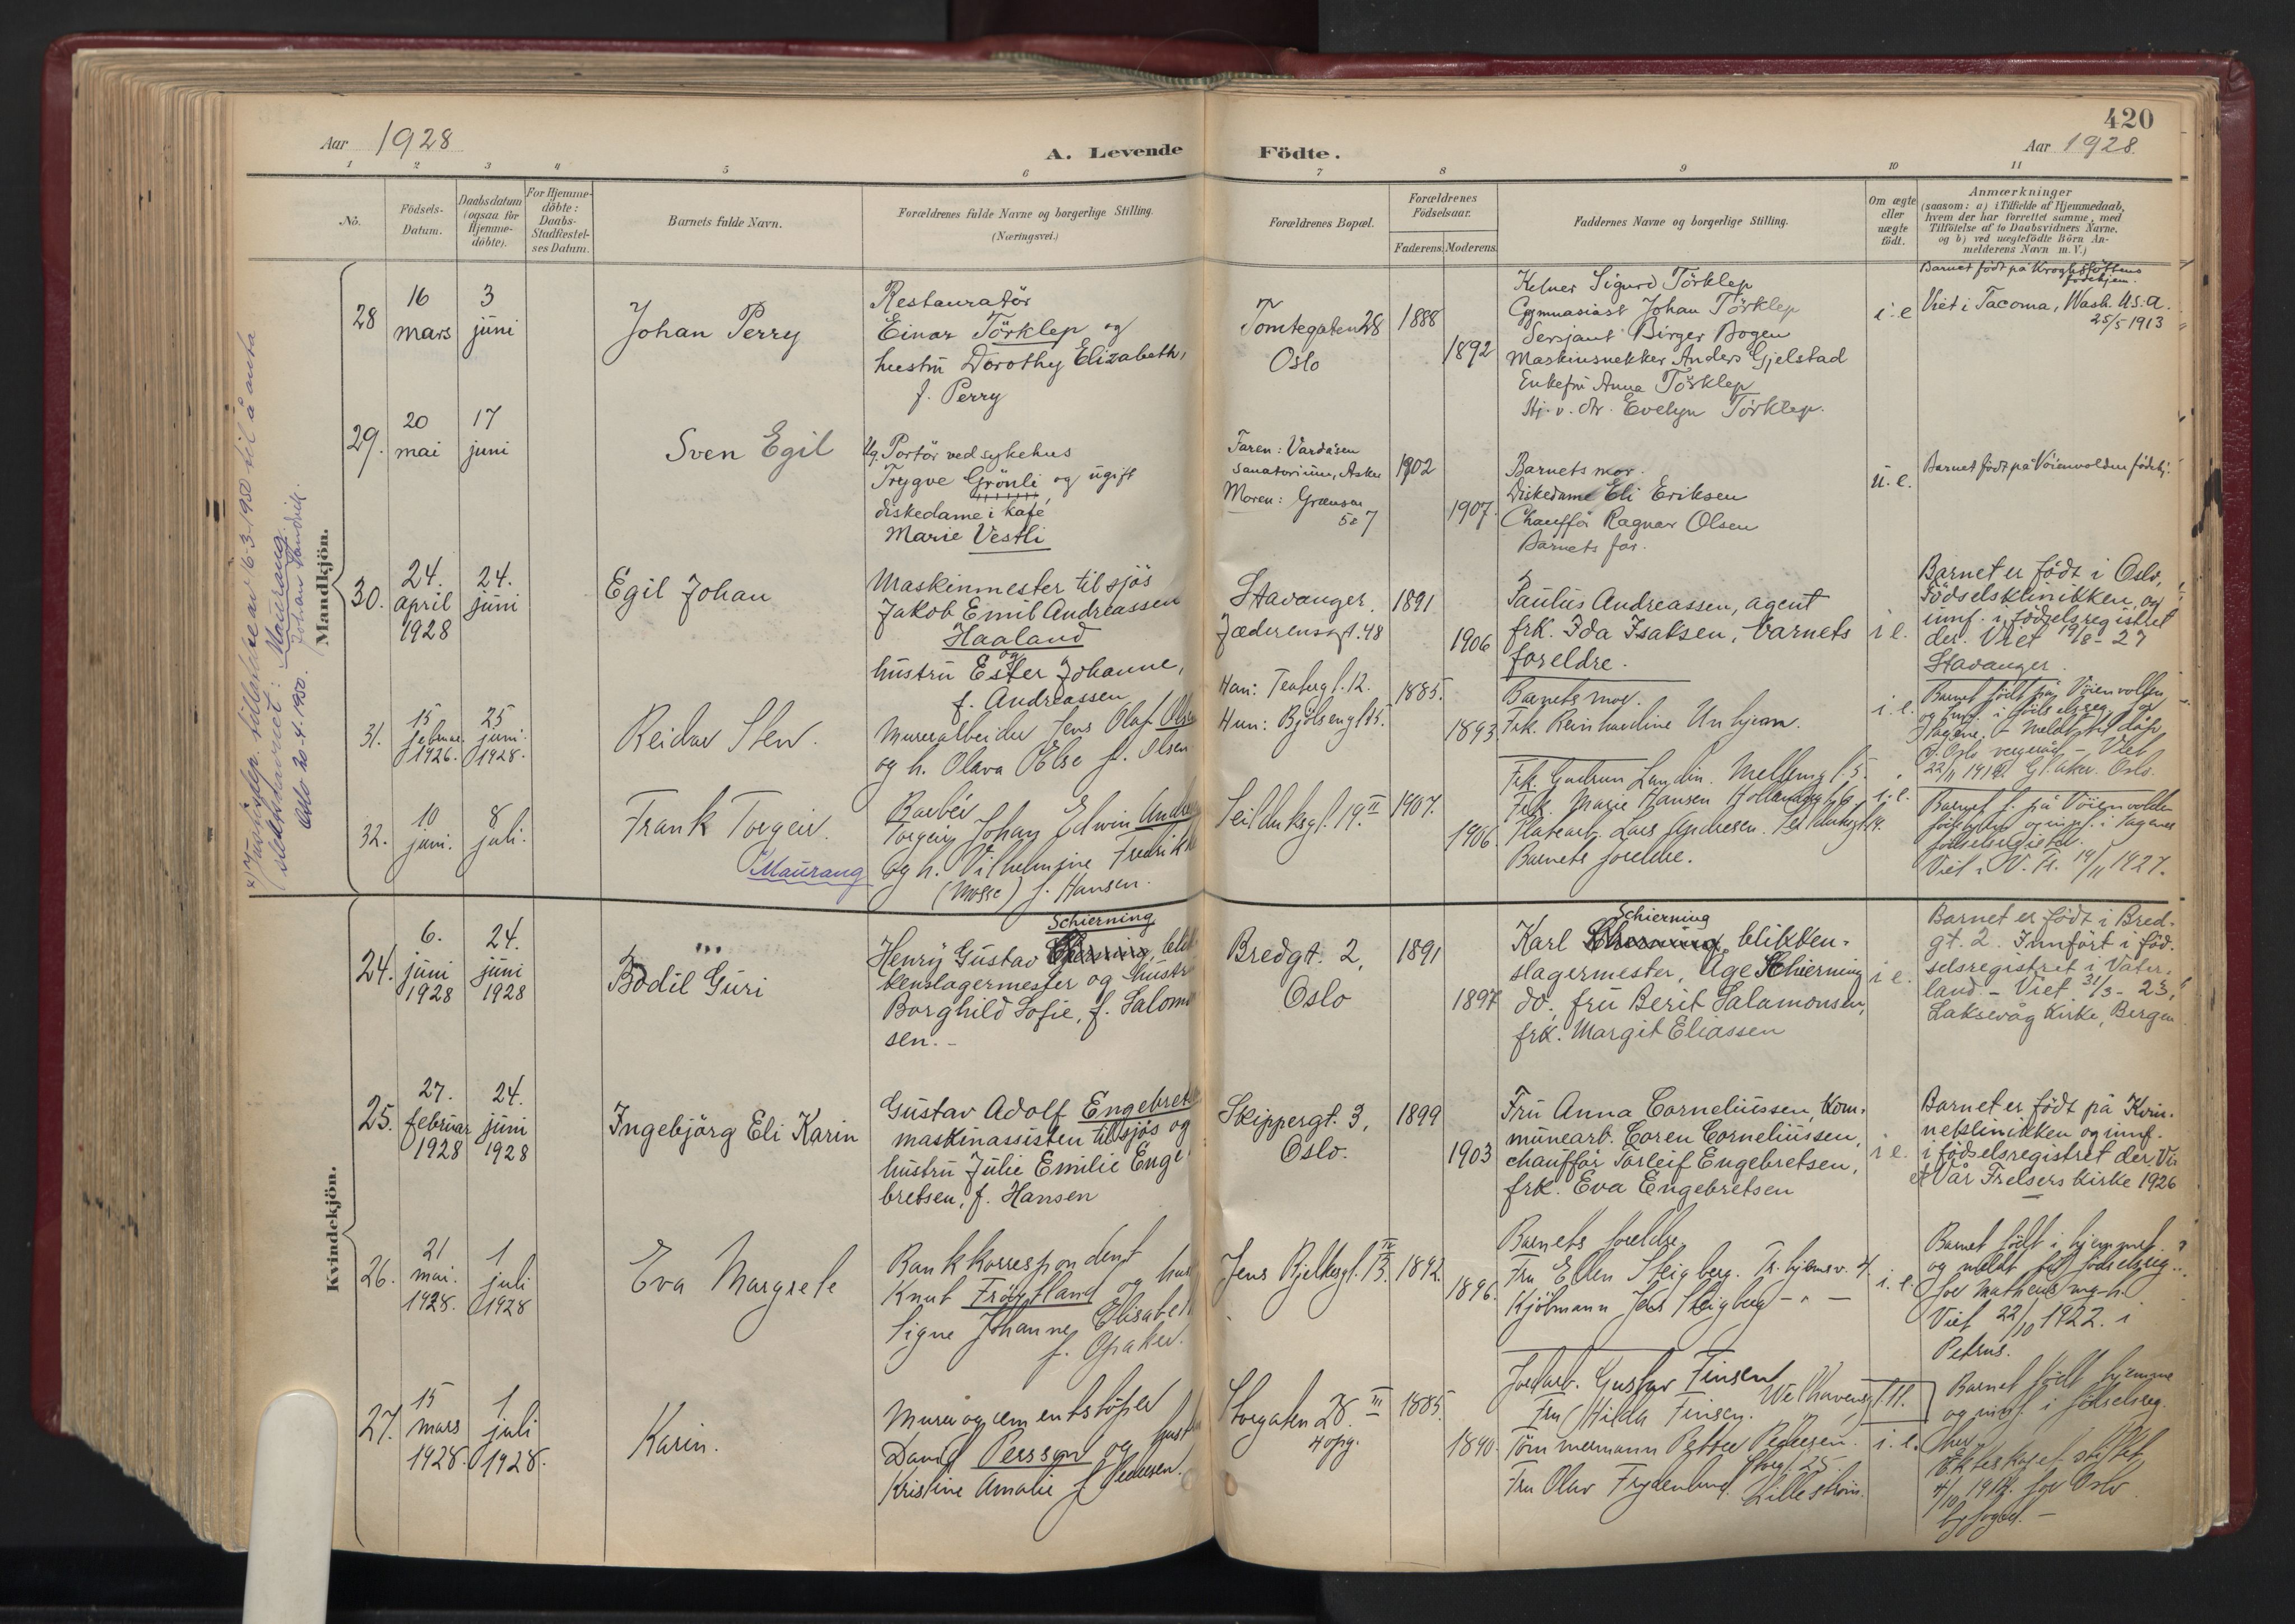 420
Aar 1928
A. Levende
Födte.
Aar 1928
1 2 3 4 5 6 7 8 9 10 11
No.
Födsels-
Datum.
Daabsdatum
(ogsaa for
Hjemme-
döbte).
For Hjemme-
döbte:
Daabs-
Stadfæstel-
ses Datum.
Barnets fulde Navn.
Forældrenes fulde Navne og borgerlige Stilling.
(Næringsvei.)
Forældrenes Bopæl.
Forældrenes
Födselsaar.
Faderens. Moderens.
Faddernes Navne og borgerlige Stilling.
Om ægte
eller
uægte
födt.
Anmærkninger
(saasom: a) i Tilfælde af Hjemmedaab,
hvem der har forrettet samme, med
Tilföielse af to Daabsvidners Navne,
og b) ved uægtefödte Börn An-
melderens Navn m. V.)
Mandkjön.
28
16
mars
3
juni
Johan Perry
Restauratör
Einar Törklep og
hustru Dorothy Elizabeth,
f. Perry
Tomtegaten 28
Oslo
1888
1892
Kelner Sigurd Törklep
Gymnasiast Johan Törklep
Sersjant Birger Bogen
Maskinsnekker Anders Gjelstad
Enkefru Anna Törklep
Evelyn Törklep.
i. e
Barnet födt på Kroghstöttens
födehjem.
Viet i Tacoma, Wash. U.S.A.
25/5 1913
29.
20
mai
17
juni
Sven Egil
Ug. Portör ved sykehus
Trygve Grönli og ugift
diskedame i kafe
Marie Vestli
Faren: Vardåsen
sanatorium, Asker
Moren: Grænsen
5 7
1902
1907.
Barnets mor.
Diskedame Eli Eriksen
Chaufför Ragnar Olsen
Barnets far.
u. e.
Barnet födt på Vöienvolden födehj.
30.
24.
april
1928
24.
juni
Egil Johan
Maskinmester til sjös
Jakob Emil Andreassen
Haaland
og
hustru Ester Johanne,
f. Andreassen
Stavanger,
Jæderensgt. 48
1891
1906
Paulus Andreassen, agent
frk. Ida Isaksen, barnets
foreldre.
i e.
Barnet er födt i Oslo,
Födselsklinikken, og
innf. i födselsregistret
der. Viet 19/8 - 27
Stavanger.
31.
15
februar
1926.
25
juni
1928.
Reidar Sten.
Murerarbeider Jens Olaf Olsen
og h. Olava Else f. Olsen
Han: Teatergt. 12.
Hun: Bjölsengt 25.
1885.
1893
Barnets mor.
Frk. Reinhardine Unhjem.
i. e.
Barnet födt på Vöienvolden
og innf. i födselsreg. for
Hagene. - Meldt til dåp
v. Oslo vergeråd - Viet
22/11 1919 Gl. Aker. Oslo.
32.
10
juni.
8
juli.
Frank Torgeir.
Maurang
Torgeir Johan Edwin Andre
og h. Vilhelmine Fredrikke
(Mosse) f. Hansen.
Seilduksgt. 19. II
1907.
1906
Frk. Gudrun Lundin. Mellemgt. 5.
Frk. Marie Hansen
Platearb. Lars Andresen. Seilduksgt.
Barnets foreldre.
i. e.
Barnet f. på Vöienvolden
födehjem og innf. i Hagenes
födselsregister.
Viet i V. Fr. 19/11 1927.
Maurang.
Oslo 20-4-1950.
Kvindekjön.
24.
6.
juni
1928
24.
juni
1928
Bodil Guri
Schierning
Henry Gustav blik
kenslagermester og hustru
Borghild Sofie, f. Salomon
sen. -
Bredgt. 2,
Oslo
1891
1897
Schierning
Karl blikken-
slagermester, Åge Schierning
do, fru Berit Salamonsen,
frk. Margit Eliassen
i e.
Barnet er födt i Bred-
gt. 2. Innfört i föd-
selsregistret i Vater-
land. - Viet 31/3 - 23,
Laksevåg kirke, Bergen
25.
27.
februar
1928
24.
juni
1928
Ingebjörg Eli Karin
Gustav Adolf Engebretsen
maskinassisten til sjös og
hustru Julie Emilie Enge
bretsen, f. Hansen
Skippergt. 3,
Oslo.
1899
1903
Fru Anna Corneliussen, kom-
munearb. Coren Corneliussen,
chaufför Torleif Engebretsen,
frk. Eva Engebretsen
i e.
Barnet er födt på Kvin-
neklinikken og innf.
i födselsregistret der. Vi-
et Vår Frelsers kirke 1926
26.
21
mai.
1928.
1
juli
1928
Eva Margrete
Bankkorrespondent
Knut Fröytland og hus
Signe Johanne Elisabeth
f. Opaker.
Jens Bjelkesgt. 13. IV
1892.
1896.
Barnets foreldre.
Fru Ellen Steigberg. Tr. hjemsv. 4.
Kjöbmann Jens Steigberg - " -
i. e.
Barnet födt i hjemmet
og meldt til födselsreg.
for Matheus mgh.
Viet 22/10 1922. i
Petrus.
27.
15
mars
1928.
1
juli
1928.
Karin.
Murer og cementstöper
David Persson og hustru
Kristine Amalie f. Pedersen.
Storgaten 28. III
4 opg.
1885.
1890.
Jordarb. Gustav Finsen
Fru Hilda Finsen. Welhavensgt. 11.
Tömmermann Petter Pedersen.
Storgt. 25.
Fru Olav Frydenlund. Lilleström.
i. e.
Barnet födt hjemme
og innf. i födselsreg.
her.
Ekteskapet stiftet
4/10 1914. for Oslo
byfogd. -